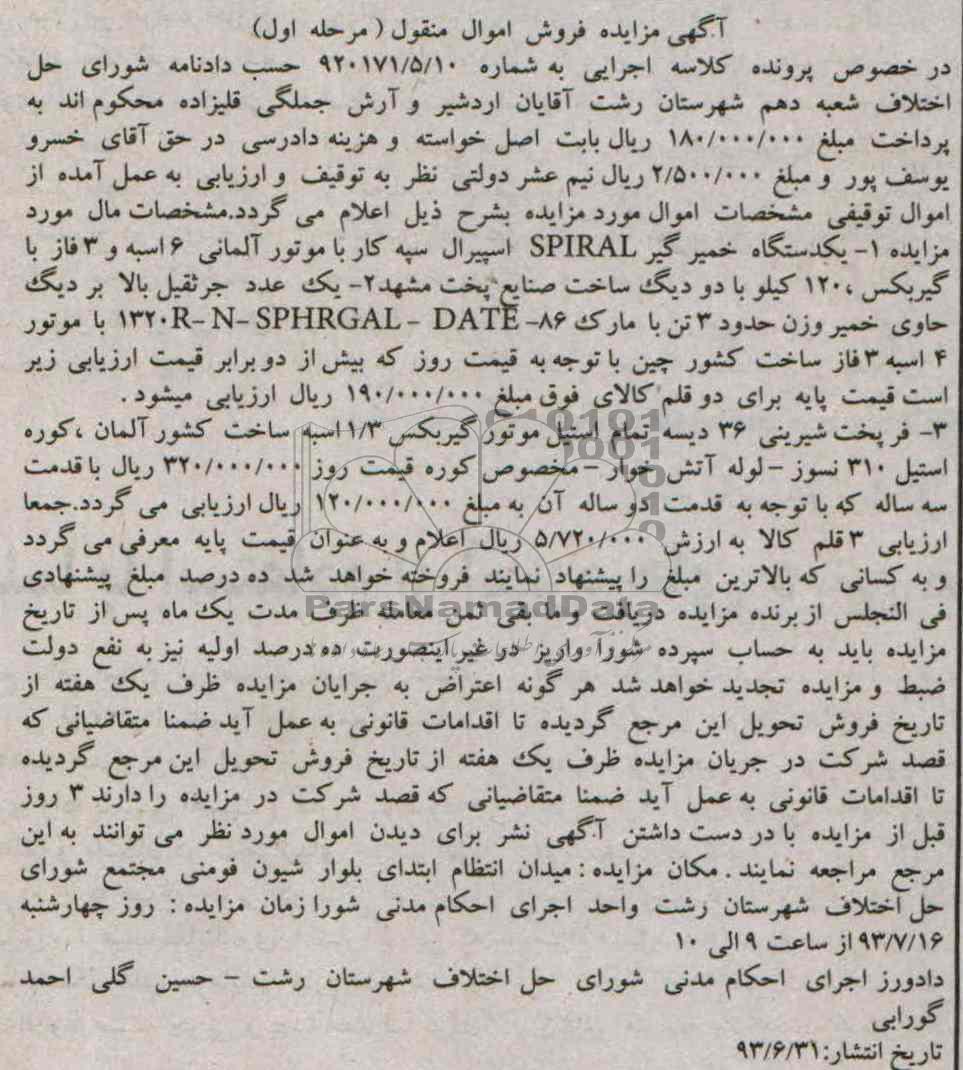 آگهی مزایده فروش اموال منقول (مرحله اول)
در خصوص پرونده کلاسه اجرایی به شماره ۹۲۰۱۷۱/۵/۱۰ حسب دادنامه شورای حل
اختلاف شعبه دهم شهرستان رشت آقایان اردشیر و آرش جملگی قلیزاده محکوم اند به
پرداخت مبلغ ۱۸۰/۰۰۰/۰۰۰ ریال بابت اصل خواسته و هزینه دادرسی در حق آقای خسرو
یوسف پور و مبلغ ۲/۵۰۰/۰۰۰ ریال نیم عشر دولتی نظر به توقیف و ارزیابی به عمل آمده از
اموال توقیفی مشخصات اموال مورد مزایده بشرح ذیل اعلام می گردد.مشخصات مال مورد
مزایده ۱- یکدستگاه خمیر گیر SPIRAL اسپیرال سپه کار با موتور آلمانی ۶ اسبه و ۳ فاز با
گیربکس ،۱۲۰ کیلو با دو دیگ ساخت صنایع پخت مشهد۲- یک عدد جرثقیل بالا بر دیگ
حاوی خمیر وزن حدود ۳ تن با مارک ۸۶- R- N- SPHRGAL - DATE۱۳۲۰ با موتور
۴ اسبه ۳ فاز ساخت کشور چین با توجه به قیمت روز که بیش از دو برابر قیمت ارزیابی زیر
است قیمت پایه برای دو قلم کالای فوق مبلغ ۱۹۰/۰۰۰/۰۰۰ ریال ارزیابی میشود .
۳- فر پخت شیرینی ۳۶ دیسه تمام استیل موتور گیربکس ۱/۳ اسبه ساخت کشور آلمان ،کوره
استیل ۳۱۰ نسوز -لوله آتش خوار -مخصوص کوره قیمت روز ۳۲۰/۰۰۰/۰۰۰ ریال با قدمت
سه ساله که با توجه به قدمت دو ساله آن به مبلغ ۱۲۰/۰۰۰/۰۰۰ ریال ارزیابی می گردد.جمعا
ارزیابی ۳ قلم کالا به ارزش ۵/۷۲۰/۰۰۰ ریال اعلام و به عنوان قیمت پایه معرفی می گردد
و به کسانی که بالاترین مبلغ را پیشنهاد نمایند فروخته خواهد شد ده درصد مبلغ پیشنهادی
ParsNamadData
فی النجلس از برنده مزایده دریافت و ما بقی ثمن معامله ظرف مدت یک ماه پس از تاریخ
مزایده باید به حساب سپرده شورا واریز در غیر اینصورت ده درصد اولیه نیز به نفع دولت
ضبط و مزایده تجدید خواهد شد هر گونه اعتراض به جرایان مزایده ظرف یک هفته از
تاریخ فروش تحویل این مرجع گردیده تا اقدامات قانونی به عمل آید ضمنا متقاضیانی که
قصد شرکت در جریان مزایده ظرف یک هفته از تاریخ فروش تحویل این مرجع گردیده
تا اقدامات قانونی به عمل آید ضمنا متقاضیانی که قصد شرکت در مزایده را دارند ۳ روز
قبل از مزایده با در دست داشتن آگهی نشر برای دیدن اموال مورد نظر می توانند به این
مرجع مراجعه نمایند . مکان مزایده : میدان انتظام ابتدای بلوار شیون فومنی مجتمع شورای
حل اختلاف شهرستان رشت واحد اجرای احکام مدنی شورا زمان مزایده : روز چهارشنبه
۹۳/۷/۱۶ از ساعت ۹ الی ۱۰
دادورز اجرای احکام مدنی شورای حل اختلاف شهرستان رشت - حسین گلی احمد
گورابی
تاریخ انتشار:۹۳/۶/۳۱